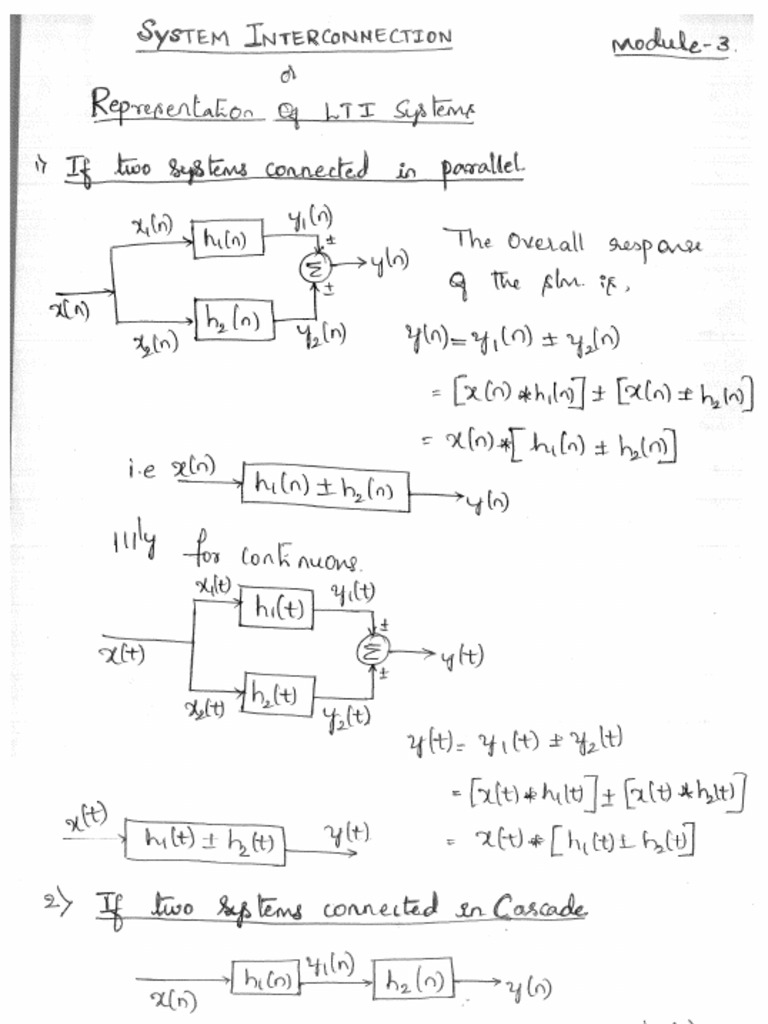 SYSTEM INTERCONNECTION
Module-3.
or
Representation of LTI Systems
1) If two systems connected in parallel.
x₁(n) h₁(n) y₁(n) ±
x(n) Σ y(n)
x₂(n) h₂(n) y₂(n) ±
The Overall response
of the s/m. is,
y(n)= y₁(n) ± y₂(n)
= [x(n) * h₁(n)] ± [x(n) ± h₂(n)]
= x(n) * [h₁(n) ± h₂(n)]
i.e x(n) h₁(n) ± h₂(n) y(n)
|||ly for continuous.
x₁(t) h₁(t) y₁(t) ±
x(t) Σ y(t)
x₂(t) h₂(t) y₂(t) ±
y(t)= y₁(t) ± y₂(t)
= [x(t) * h₁(t)] ± [x(t) * h₂(t)]
= x(t) * [h₁(t) ± h₂(t)]
x(t) h₁(t) ± h₂(t) y(t)
2) If two systems connected in Cascade
x(n) h₁(n) y₁(n) h₂(n) y(n)